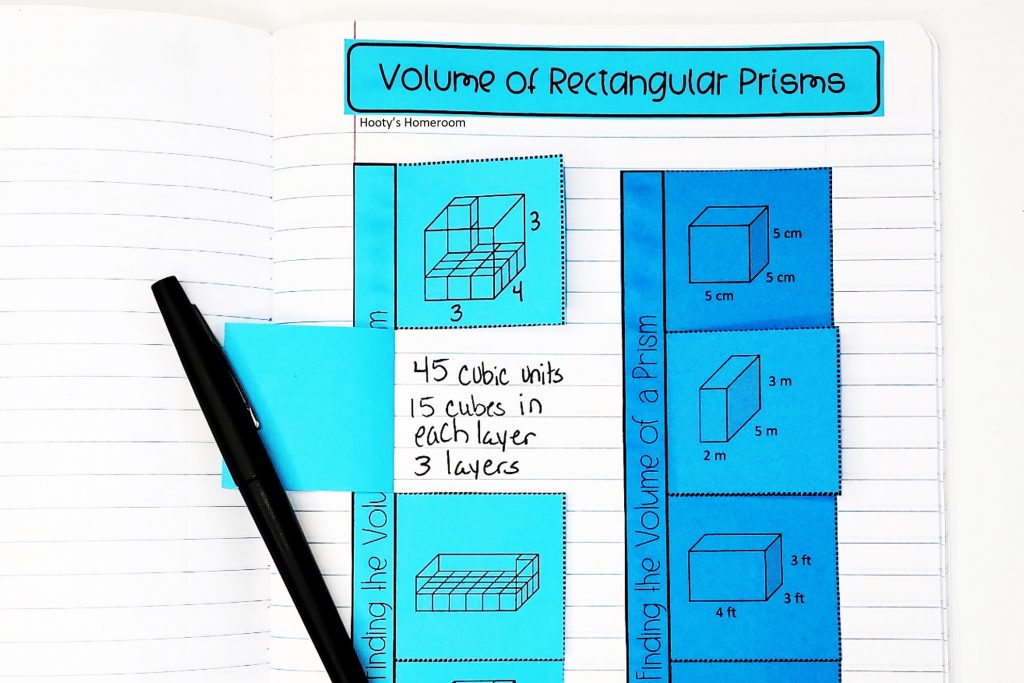 Volume of Rectangular Prisms
Hooty's Homeroom
3
4
3
45 cubic units
15 cubes in
each layer
3 layers
Finding the Volu
m
Finding the Volume of a Prism
5 cm
5 cm
5 cm
3 m
5 m
2 m
3 ft
3 ft
4 ft